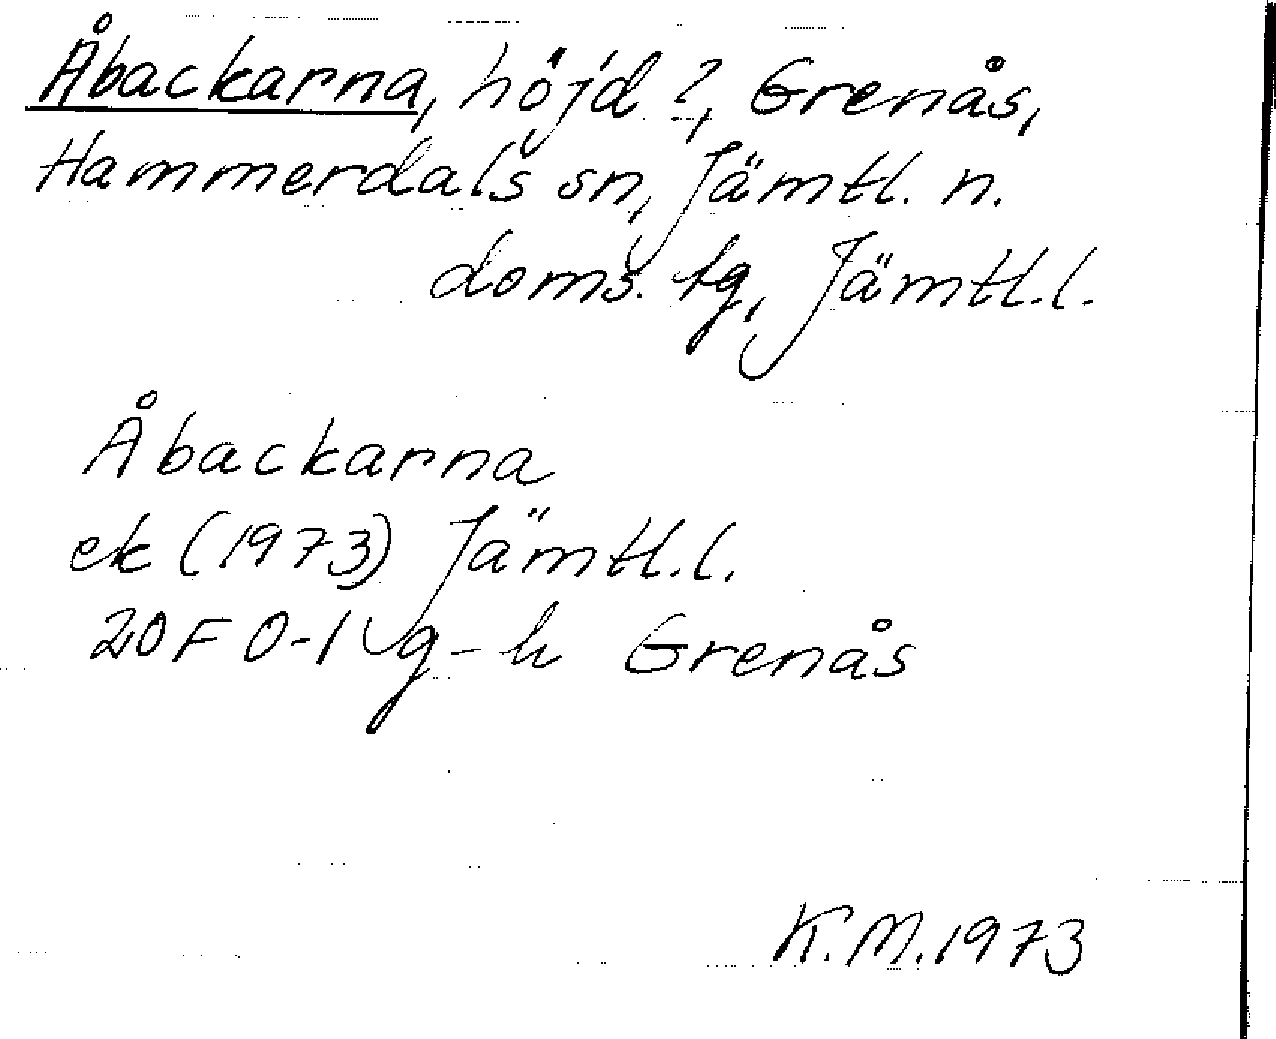 Åbackarna, höjd ?, Grenås,
Hammerdals sn, Jämtl. n.
doms. tg, Jämtl. l.
Åbackarna
ek (1973) Jämtl. l.
20F 0-1 g-h Grenås
K.M. 1973